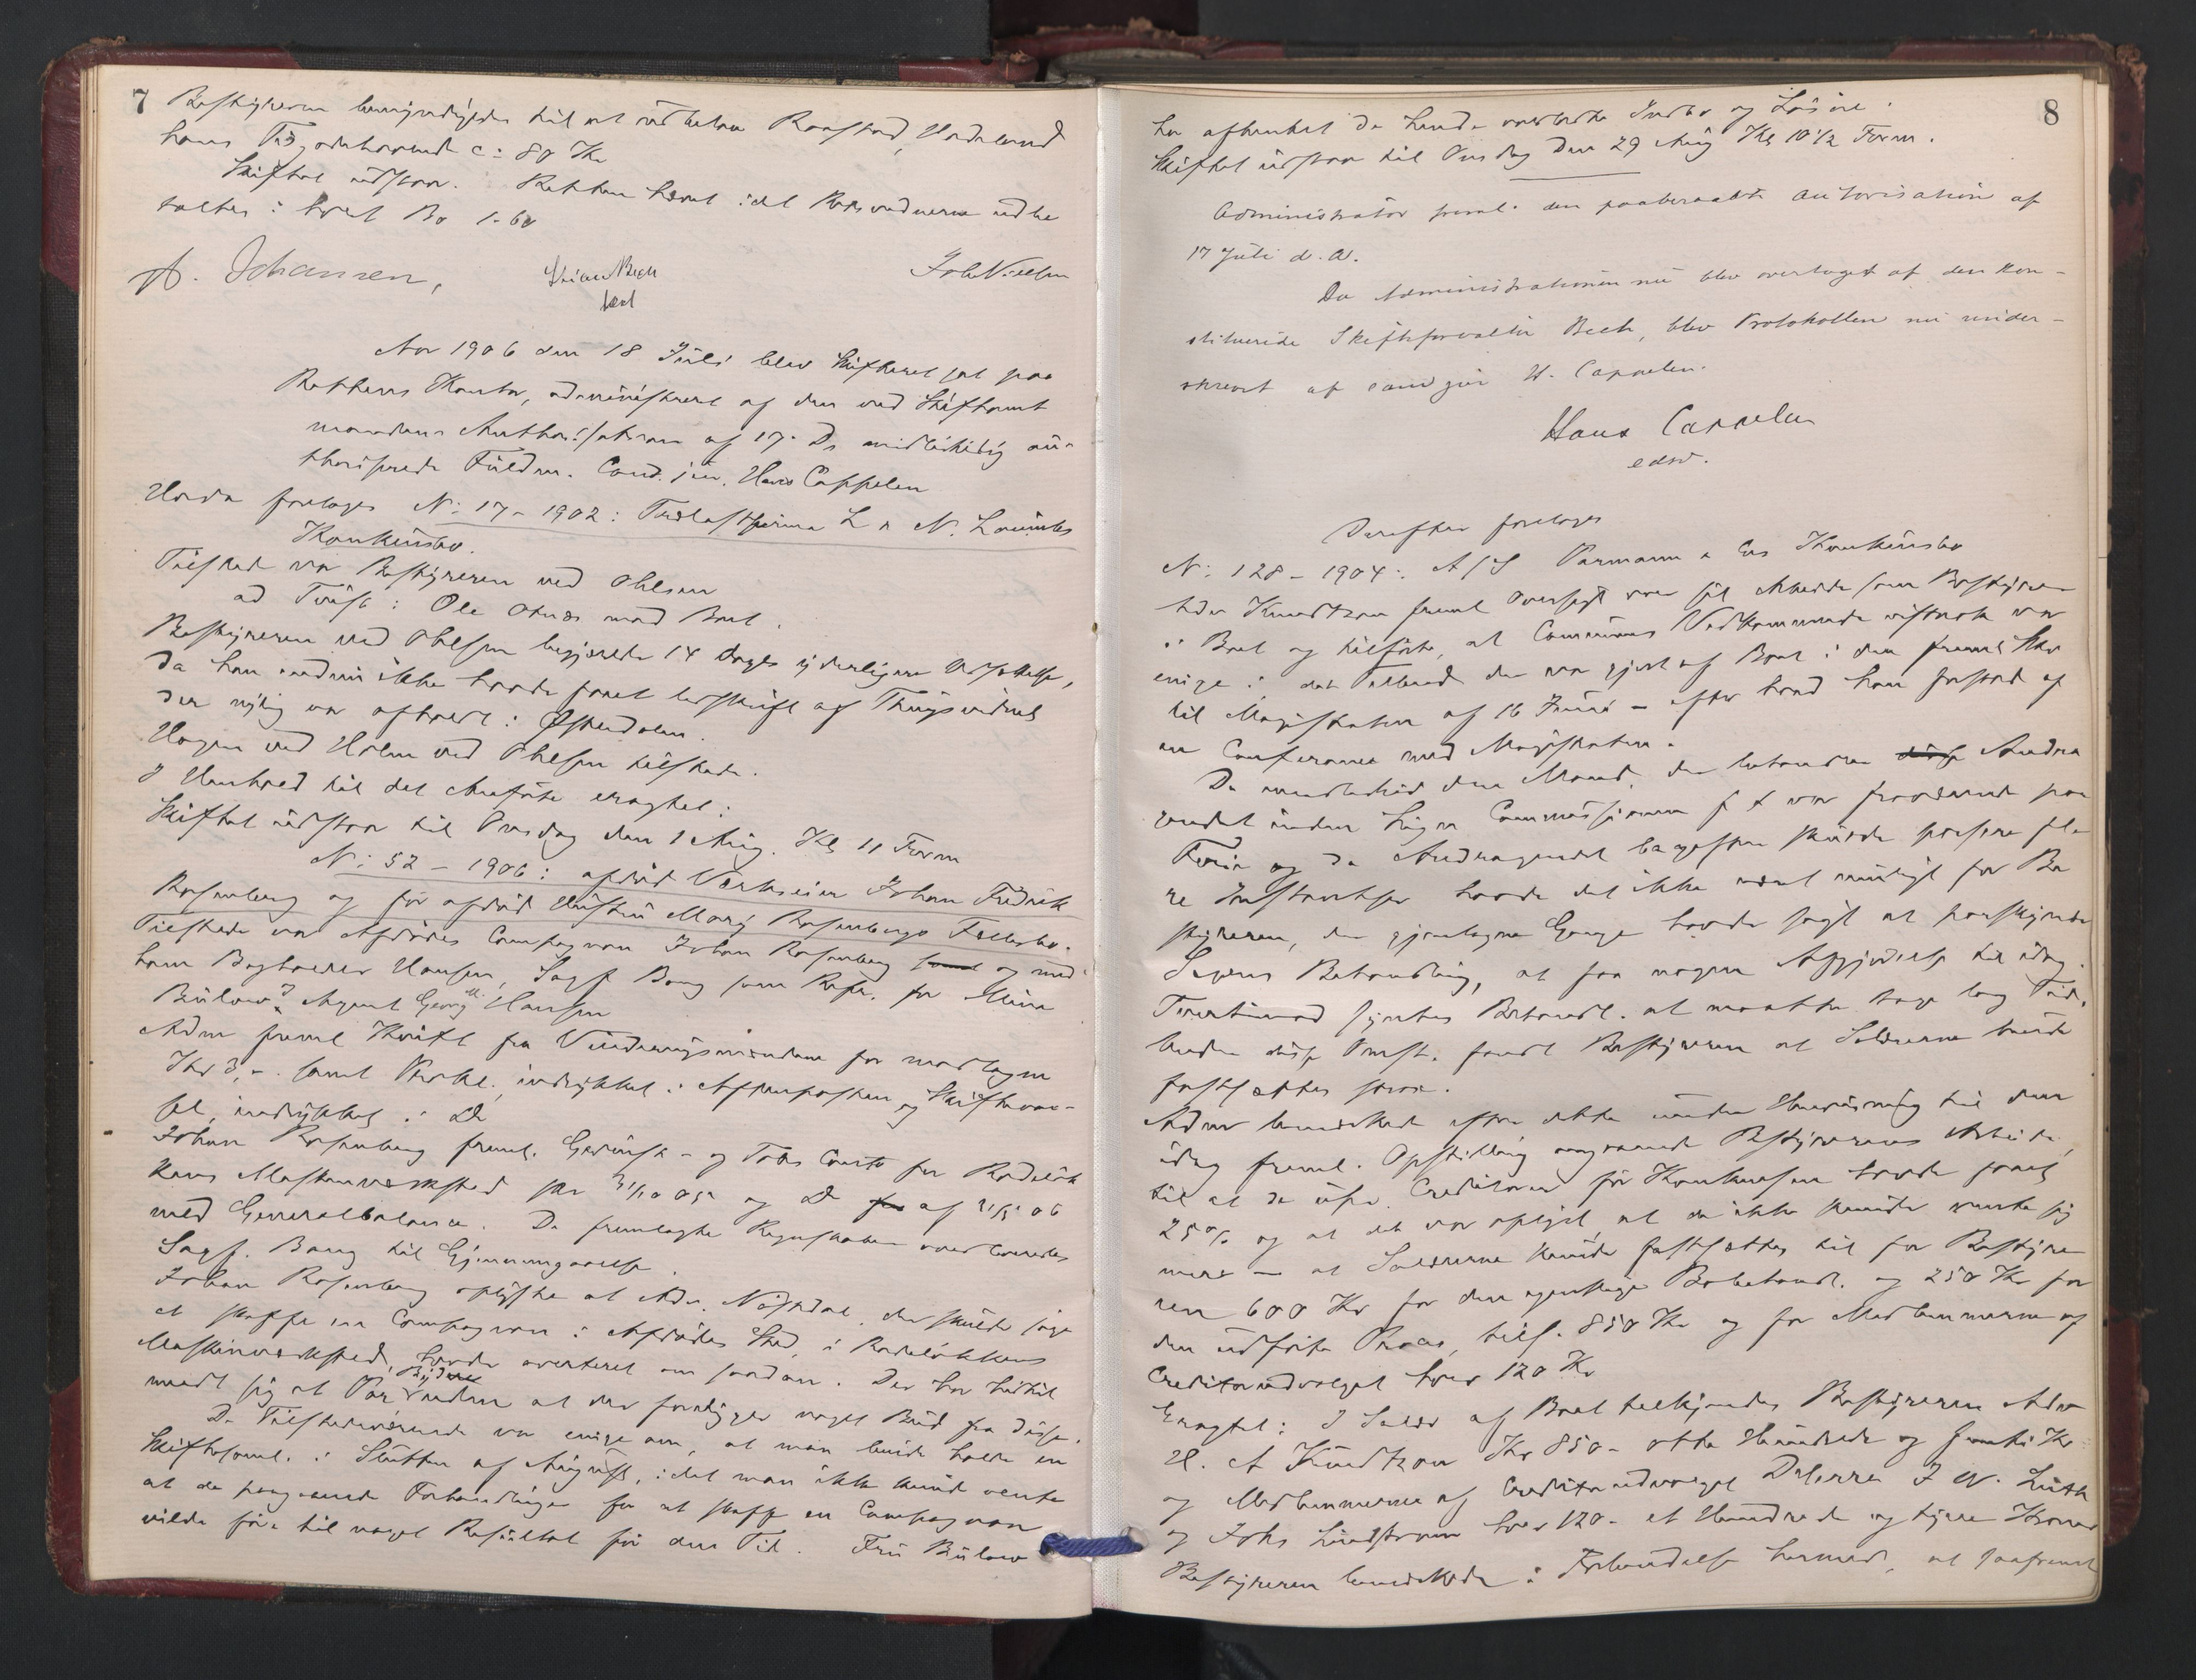 7
Bestyreren bemyndigedes til at udbetale Raastad, Hadeland
hans Tilgodehavende c: 80 Kr
Skiftet udstaar. Retten hævet idet Retsvidnerne udbe
taltes: hvert Bo 1.60
A. Johansen,
Aar 1906 den 18 Juli blev Skifteret sat paa
Rettens Kontor, administreret af den ved Skifteamt
mandens Authorisation af 17. Ds midlertidig au-
thoriserede Fuldm. Cand. jur. Hans Cappelen
Hvorda foretages N: 17 - 1902: Trælastfirma L & N.
Konkursbo.
Tilstede var Bestyreren ved Ohlsen
Bestyreren ved Ohlsen begjærede 14 Dages yderligere Udsættelse,
da han endnu ikke havde faaet Udskrift af Thingsvidnet
der nylig var afholdt i Østerdalen.
Hagen ved Holm ved Ohlsen tilstede.
I Henhold til det Anførte eragtet:
Skiftet udstaar til Onsdag den 1 Aug. Kl 11 Form
N: 52 - 1906: afdød Værkseier Johan Fredrik
Rosenberg og før afdød Hustru Mary Rosenbergs Fællesbo.
Tilstede var Afdødes Compagnon Johan Rosenberg og med
ham Bogholder Hansen, Sagf. Bang som Repr. for Mina
Bülow, Agent Georg M. Hansen
Adm freml Kvitt fra Vurderingsmændene for modtagne
Kr 3,-. samt Prokl. indrykket i Aftenposten og Skiftevar-
sel indrykket i Do
Johan Rosenberg freml. Gevinst- og Tabs Conto for Rodeløk
kens Maskinværksted pr 31/10 05 og Do af 31/5 06
med Generalbalance. De fremlagte Regnskaber overleveredes
Sagf. Bang til Gjennemgaaelse.
Johan Rosenberg oplyste at Adv. der skulde søge
at skaffe en Compagnon i Afdødes Sted, i Rodeløkkens
Maskinværksted, havde averteret om saadan. Der har hidtil
meldt sig et Par Bydere uden at der foreligger noget Bud fra disse.
De Tilstedeværende var enige om, at man burde holde en
Skiftesaml. i Slutten af August, idet man ikke kunde vente
at de paagaaende Forhandlinger for at skaffe en Compagnon
vilde føre til noget Resultat før den Tid. Fru Bülow
8
har afhentet de hende overladte Indbo og Løsøre.
Skiftet udstaar til Onsdag den 29 Aug Kl 10 1/2 Form.
Administrator freml. den paaberaabte Autorisation af
17 Juli d. A.
Da Administrationen nu blev overtaget af den kon-
stituerede Skifteforvalter Bech, blev Protokollen nu under-
skrevet af cand jur H. Cappelen.
Hans Cappelen
edsv.
Derefter foretoges
N: 128 - 1904: A/S Parmann & Cos Konkursbo
Adv Knudtzon freml Oversigt over sit Arbeide som Bestyrer
i Boet og tilførte, at Communens Vedkommende vistnok var
enige i det Tilbud der var gjort af Boet i den freml Skr
til Magistraten af 16 Juni - efter hvad han forstod af
en Conferance med Magistraten.
Da imidlertid den Mand, der behandler Andra
gendet inden Lign Commissionen f t var fraværende paa
Ferie og da Andragendet bagefter skulde passere fle
re Instantser havde det ikke været muligt for Be
styreren, der gjentagne Gange havde søgt at paaskynde
Sagens Behandling, at faa nogen Afgjørelse til idag.
Forøvrigt syntes Behandl. at maatte tage lang Tid.
Under disse Omst. fandt Bestyreren at Salærerne burde
fastsættes strax.
Adm bemærkede efter dette under Henvisning til den
idag freml. Opstilling angaaende Bestyrerens Arbeide,
til at de Creditorer før Konkursen havde faaet
25% og at det var oplyst, at de ikke kunde vente sig
mere - at Salærerne kunde fastsættes til for Bestyre
ren 600 Kr for den egentlige Bobehandl. og 250 Kr for
den udførte Proces, tils. 850 Kr og for Medlemmerne af
Creditorudvalget hver 120 Kr
Eragtet: I Salær af Boet tilkjendes Bestyreren Adv
H. A Knudtzon Kr 850 - otte Hundrede og femti Kr
og Medlemmerne af Creditorudvalget DHerrer
og Johs Lindstrøm hver 120 - et Hundrede og tyve Kroner
Bestyreren bemærkede i Forbindelse hermed, at saafremt